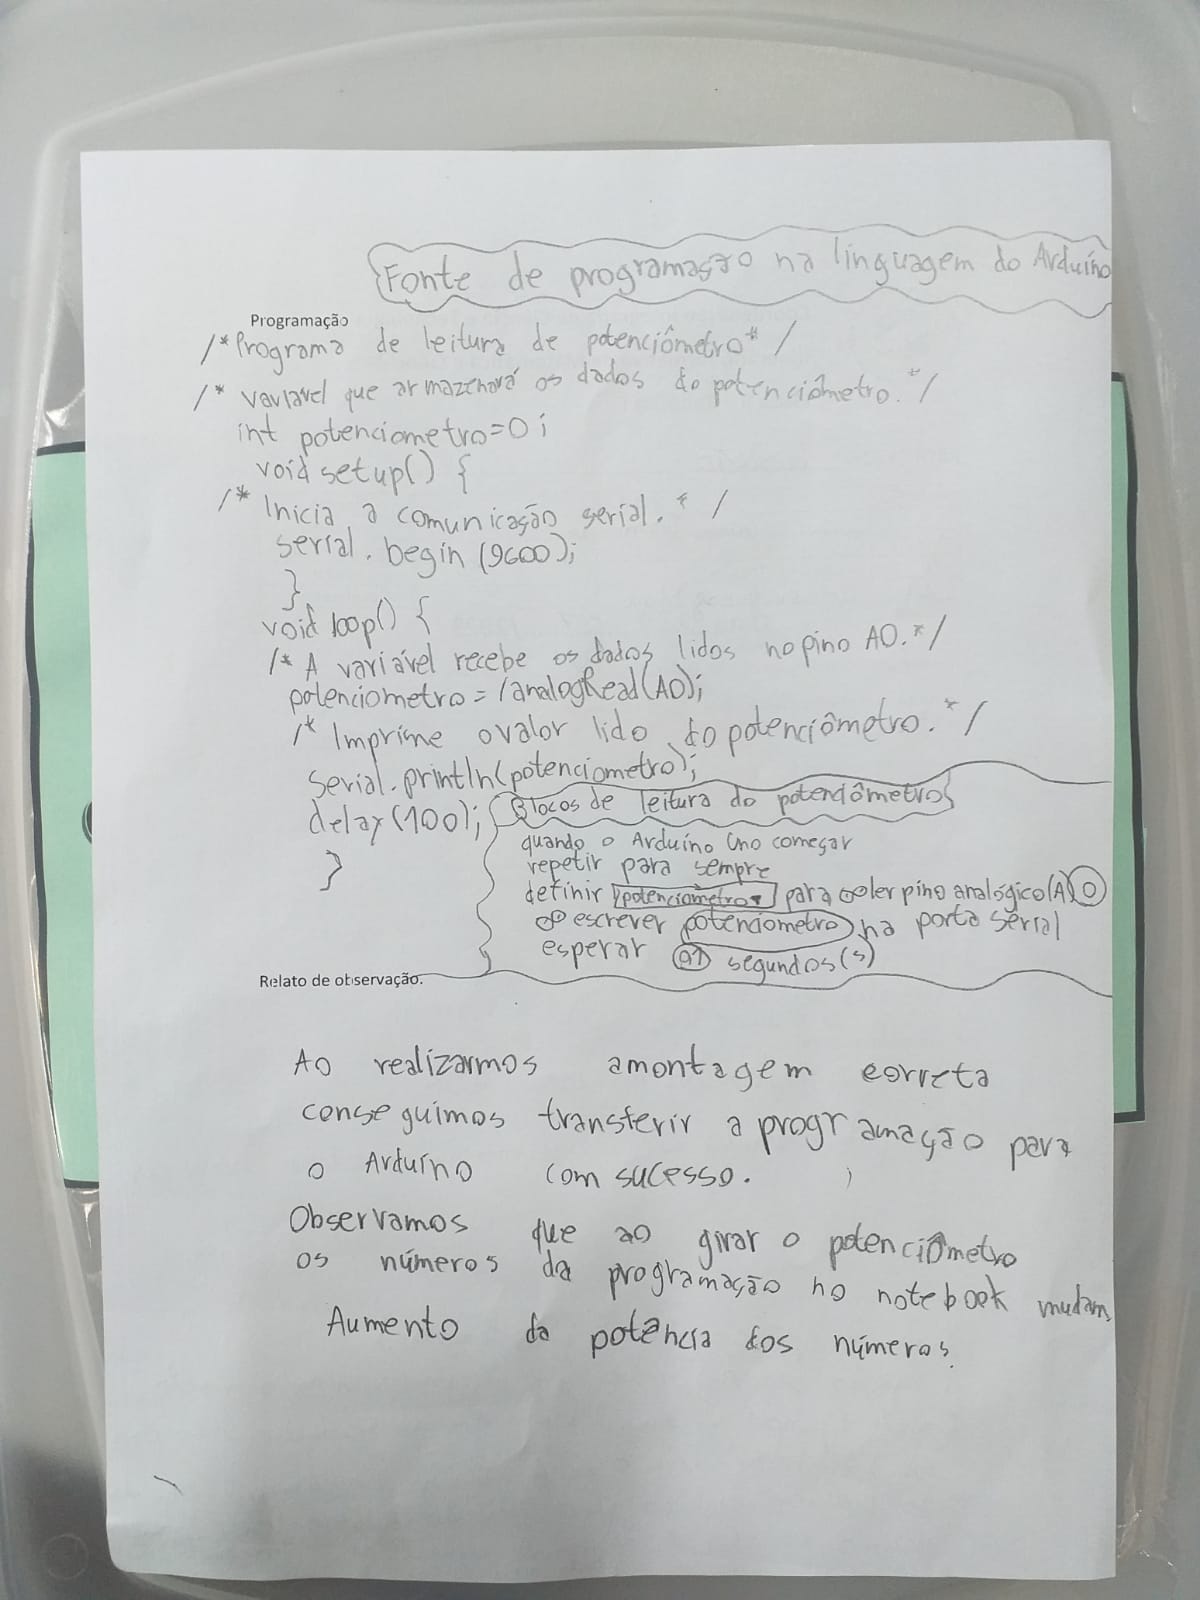 Fonte de programação na linguagem do Arduíno
Programação
/*Programa de leitura de potenciômetro*/
/* variavel que armazenará os dados do potenciômetro.*/
int potenciometro=0;
void setup() {
/* Inicia a comunicação serial.*/
serial.begin (9600);
}
void loop() {
/* A variável recebe os dados lidos no pino A0.*/
potenciometro = /analogRead(A0);
/* Imprime o valor lido do potenciômetro.*/
Serial.println(potenciometro);
delay(100);
}
Blocos de leitura do potenciômetro
quando o Arduíno Uno começar
repetir para sempre
definir potenciômetro para ler pino analógico(A) 0
escrever potenciometro na porta serial
esperar 0,1 segundos(s)
Relato de observação.
Ao realizarmos amontagem correta
conseguimos transferir a programação para
o Arduíno com sucesso.
Observamos que ao girar o potenciômetro
os números da programação no notebook mudam
Aumento da potência dos números.